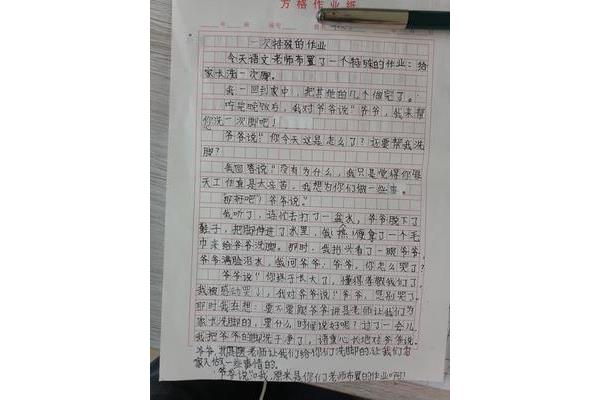 方格作业纸
一次特殊的作业
今天语文老师布置了一个特殊的作业：给
家长洗一次脚。
我一回到家中，把其他的几个做完了。
吃完晚饭后，我对爷爷说"爷爷，我来帮
你洗一次脚吧！
爷爷说"你今天这是怎么了？还要帮我洗
脚？
我回答说"没有为什么，我只是觉得你每
天工作真是太辛苦，我想为你们做一些事。
好吧）爷爷说。"
我听了，连忙去打了一盆水，爷爷脱下了
鞋子，把脚伸进了水里，我 便拿了一个毛
巾来给爷爷洗脚。那时，我抬头看了一眼爷爷，
爷爷满脸泪水，我问爷爷：爷爷，你怎么哭了？
爷爷说"你终于长大了，懂得孝敬我们了。
我被感动哭了，我对爷爷说"爷爷，您别哭了。
那时我在想：要不要跟爷爷讲是老师让我们为
家长洗脚的，要什么时候说好呢？过了一会儿，
我把爷爷的脚洗干净了，语重心长地对爷爷说。
爷爷，其实是老师让我们给你们洗脚的，让我们为
家人做一些事情的。
爷爷说"哦，原来是你们老师布置的作业啊